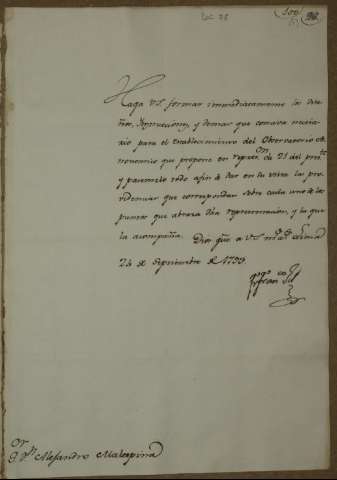 Doc 28
Haga VS. formar immediatamente los dise
ños, Ynstrucciones, y demas que conciva necesa
rio para el establecimiento del Observatorio As
tronomico que propone en represon. de 21 del preste.
y pasemelo todo afin de dar en su vista las pro
videncias que correspondan sobre cada uno de los
puntos que abraza dha representacion, y la que
la acompaña. Dios gue. a VS. ms. as. Lima
24 de Septiembre de 1793.
Or. Dn. Alesandro Malaspina